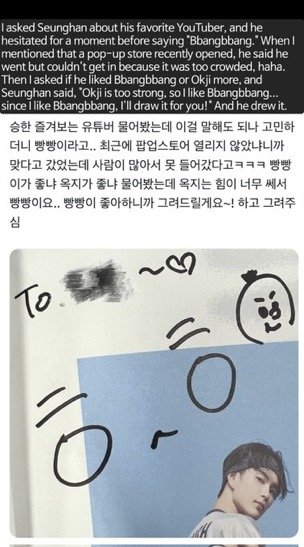 I asked Seunghan about his favorite YouTuber, and he
hesitated for a moment before saying "Bbangbbang." When I
mentioned that a pop-up store recently opened, he said he
went but couldn't get in because it was too crowded, haha.
Then I asked if he liked Bbangbbang or Okji more, and
Seunghan said, "Okji is too strong, so I like Bbangbbang...
since I like Bbangbbang, I'll draw it for you!" And he drew it.
승한 즐겨보는 유튜버 물어봤는데 이걸 말해도 되나 고민하
더니 빵빵이라고.. 최근에 팝업스토어 열리지 않았냐니까
맞다고 갔었는데 사람이 많아서 못 들어갔다고ㅋㅋㅋ 빵빵
이가 좋냐 옥지가 좋냐 물어봤는데 옥지는 힘이 너무 쎄서
빵빵이요.. 빵빵이 좋아하니까 그려드릴게요~! 하고 그려주
심
To. ~♡